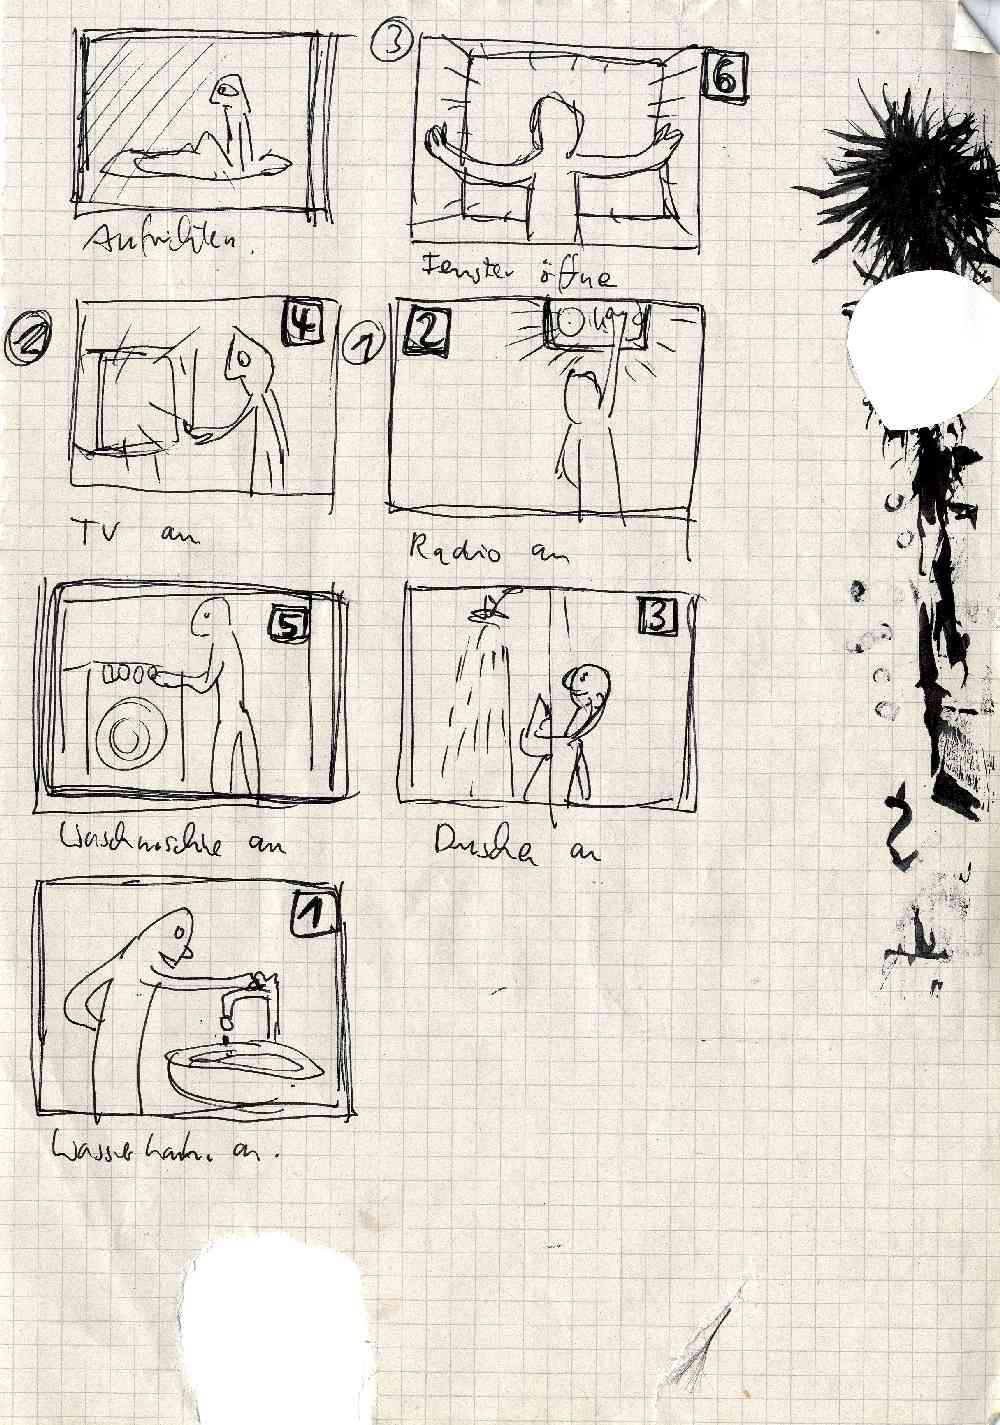 3
6
Aufrichten.
Fenster öffne
2
4
1
2
TV an
Radio an
5
3
Waschmaschine an
Duschen an
1
Wasserhahn an.